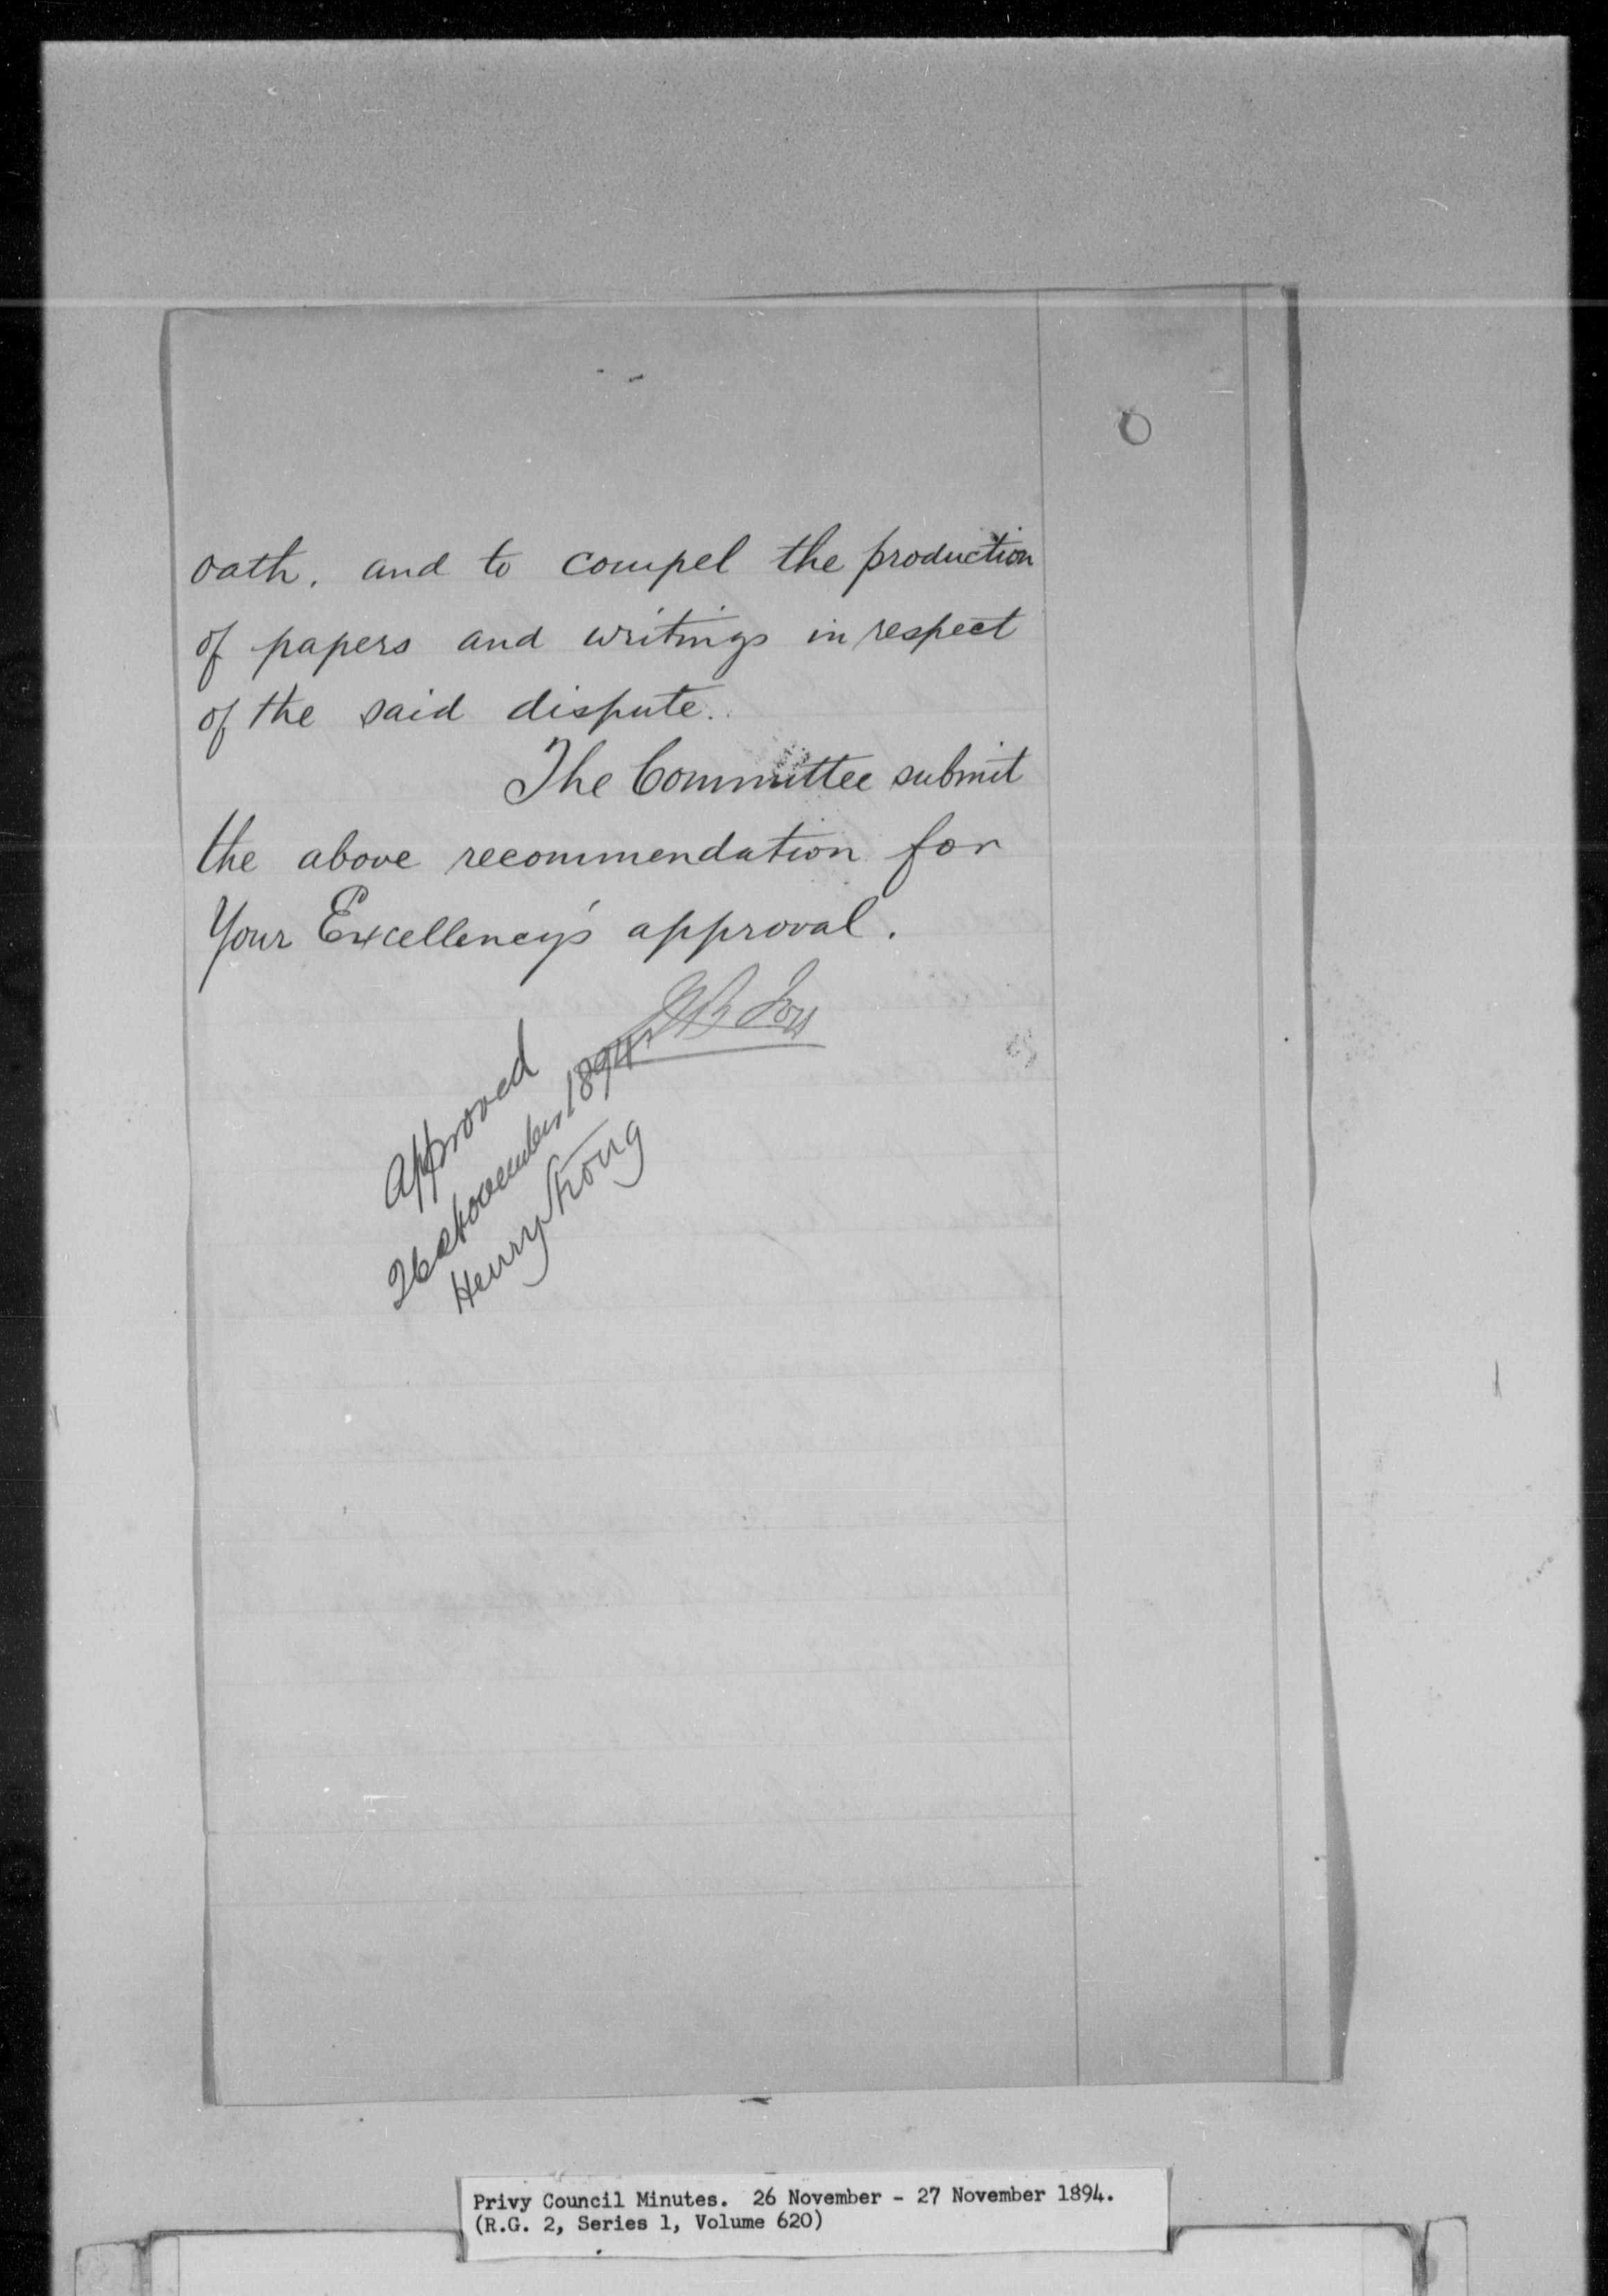 oath. and to compel the production
of papers and writings in respect
of the said dispute.
The Committee submit
the above recommendation for
Your Excellency's approval.
Approved
26 November 1894
Henry Strong
Privy Council Minutes. 26 November - 27 November 1894.
(R.G. 2, Series 1, Volume 620)